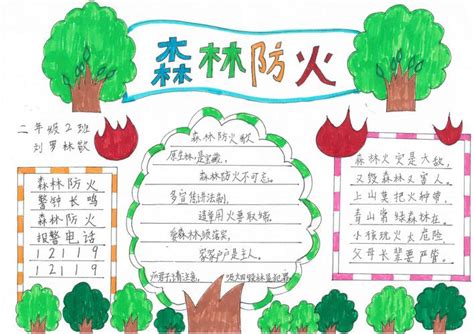 森林防火
二年级2班
刘罗林敬
森林防火
警钟长鸣
森林防火
报警电话
12119
12119
森林防火歌
原生林是宝藏，
森林防火不可忘。
多宣传讲法制，
清草用火要取缔。
爱森林须落实，
家家户户是主人。
森林火灾是大敌，
又毁森林又害人。
上山莫把火种带，
青山常绿森林在。
小孩玩火太危险，
父母长辈要严带。